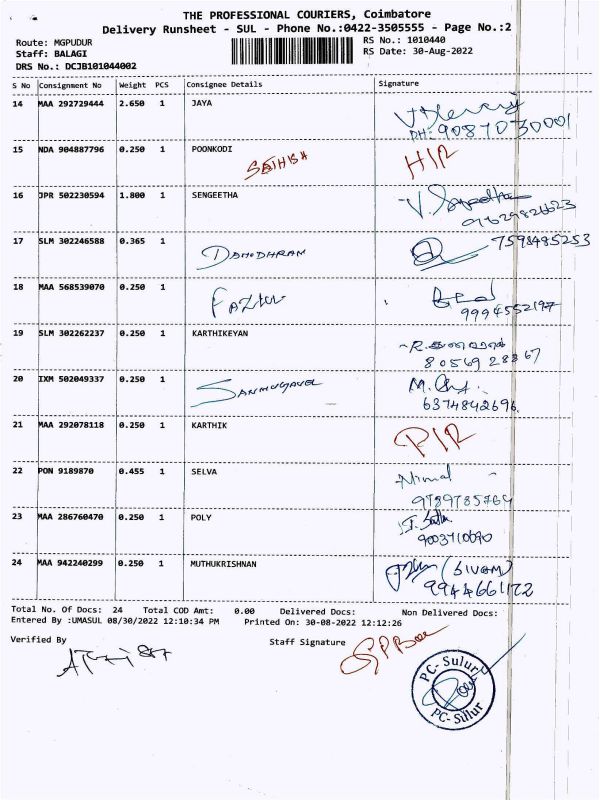 THE PROFESSIONAL COURIERS, Coimbatore
Delivery Runsheet - SUL - Phone No.:0422-3505555 - Page No.:2
Route: MGPUDUR
RS No.: 1010440
Staff: BALAGI
RS Date: 30-Aug-2022
DRS No.: DCJB101044002
S No Consignment No Weight PCS Consignee Details Signature
14 MAA 292729444 2.650 1 JAYA
PH: 9087030001
15 NDA 904887796 0.250 1 POONKODI
SATHISH
16 JPR 502230594 1.800 1 SENGEETHA
17 SLM 302246588 0.365 1 DAMODHRAM 7598485253
18 MAA 568539070 0.250 1
9994552197
19 SLM 302262237 0.250 1 KARTHIKEYAN
8056928867
20 IXM 502049337 0.250 1
6374842696
21 MAA 292078118 0.250 1 KARTHIK
22 PON 9189870 0.455 1 SELVA Nirmal
9789785764
23 MAA 286760470 0.250 1 POLY
9003710690
24 MAA 942240299 0.250 1 MUTHUKRISHNAN (SIVAM)
9944661172
Total No. Of Docs: 24 Total COD Amt: 0.00 Delivered Docs: Non Delivered Docs:
Entered By :UMASUL 08/30/2022 12:10:34 PM Printed On: 30-08-2022 12:12:26
Verified By Staff Signature
PC-Sulur
PC-Sulur